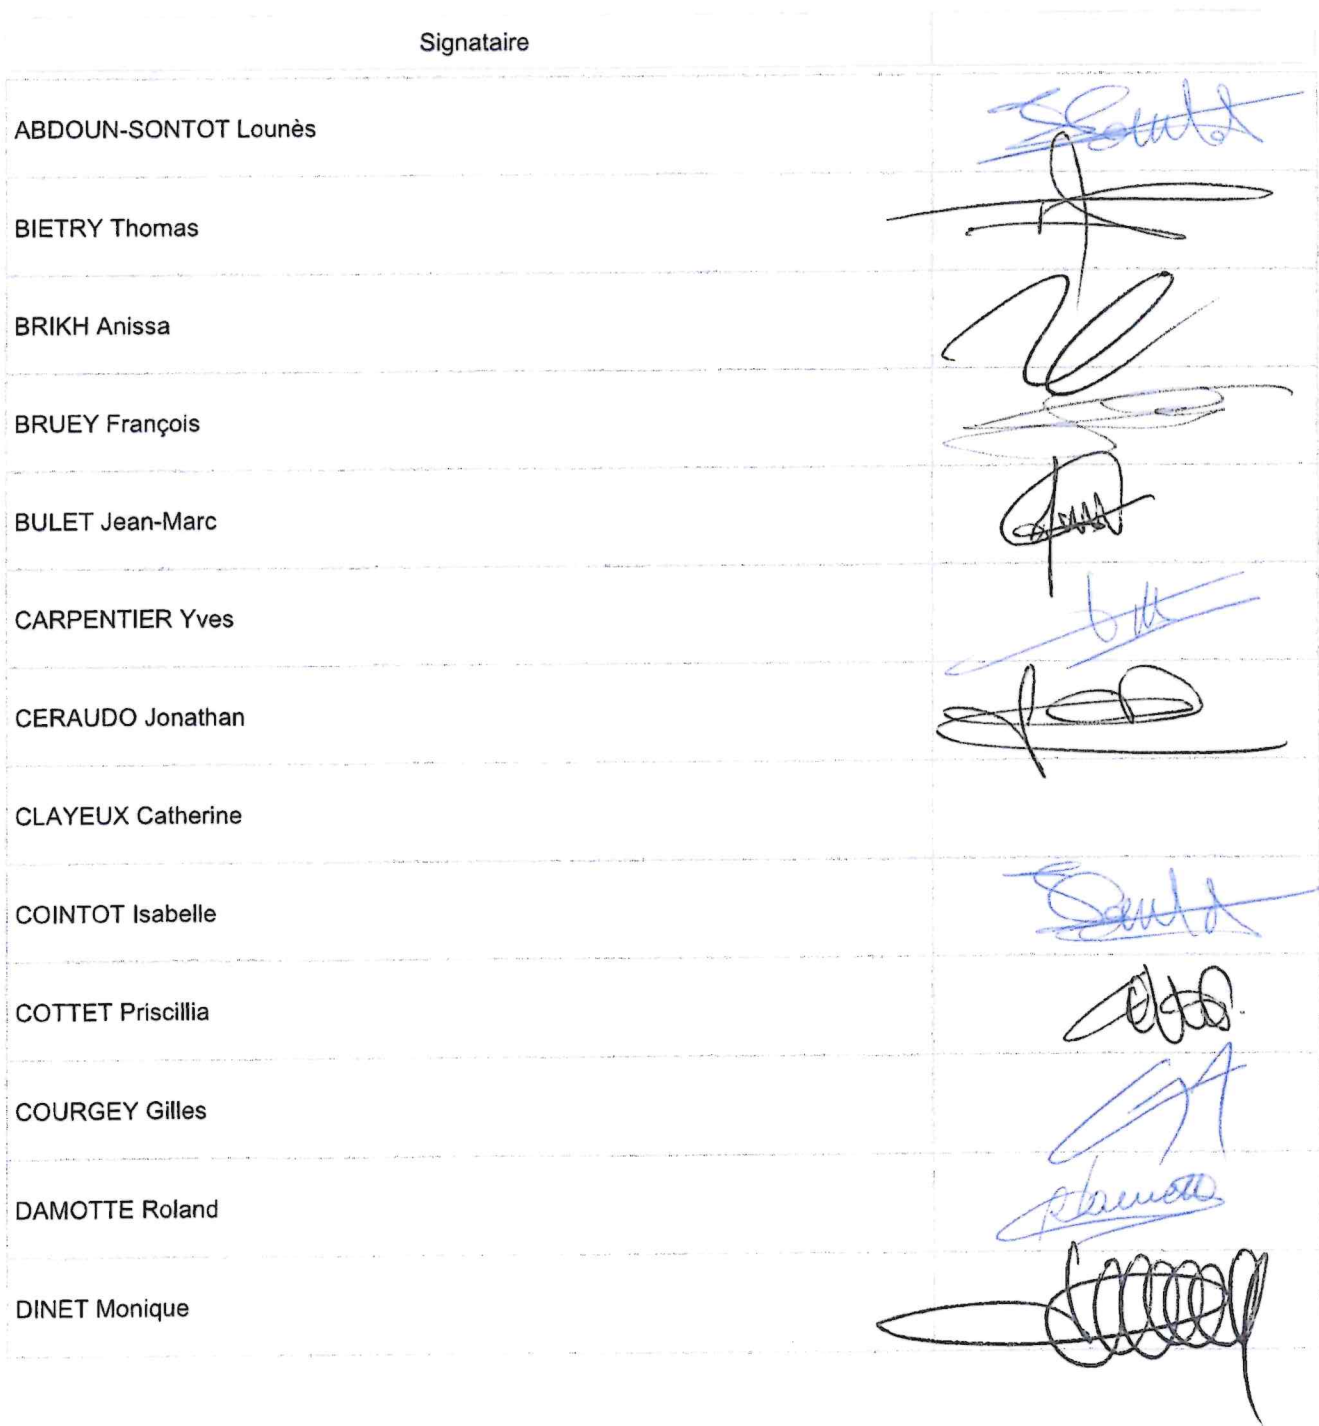 Signataire
ABDOUN-SONTOT Lounès
BIETRY Thomas
BRIKH Anissa
BRUEY François
BULET Jean-Marc
CARPENTIER Yves
CERAUDO Jonathan
CLAYEUX Catherine
COINTOT Isabelle
COTTET Priscillia
COURGEY Gilles
DAMOTTE Roland
DINET Monique